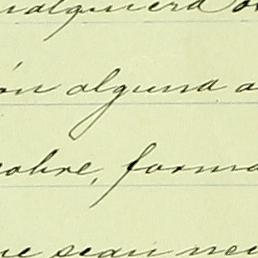 ualquiera
ón alguna a
cobre, forma
ue sean nec